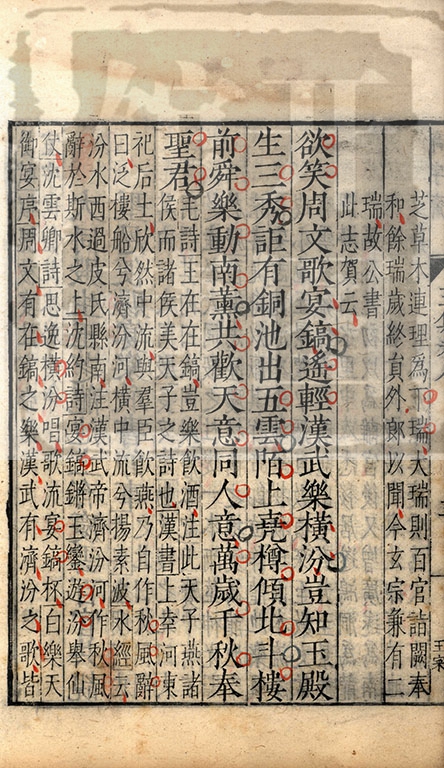 芝草木連理爲下瑞大瑞則百官詣闕奉
和餘瑞歲終貟外郎以聞今玄宗兼有二
瑞故公書
此志賀云
欲笑周文歌宴鎬遙輕漢武樂橫汾豈知玉殿
生三秀詎有銅池出五雲陌上堯樽傾北斗樓
前舜樂動南薰共歡天意同人意萬歲千秋奉
聖君毛詩王在在鎬豈樂飲酒注此天子燕諸
侯而諸侯美天子之詩也漢書上幸河東
祀后土欣然中流與羣臣飲燕乃自作秋風辭
曰泛樓船兮濟汾河橫中流兮揚素波水經云
汾水西過皮氏縣南注漢武帝濟汾河作秋風
辭於斯水之上沈約詩宴鎬鏘玉鑾遊汾舉仙
仗沈雲卿詩思逸橫汾唱歌流宴鎬杯白樂天
御宴序周文有在鎬之樂漢武有濟汾之歌皆